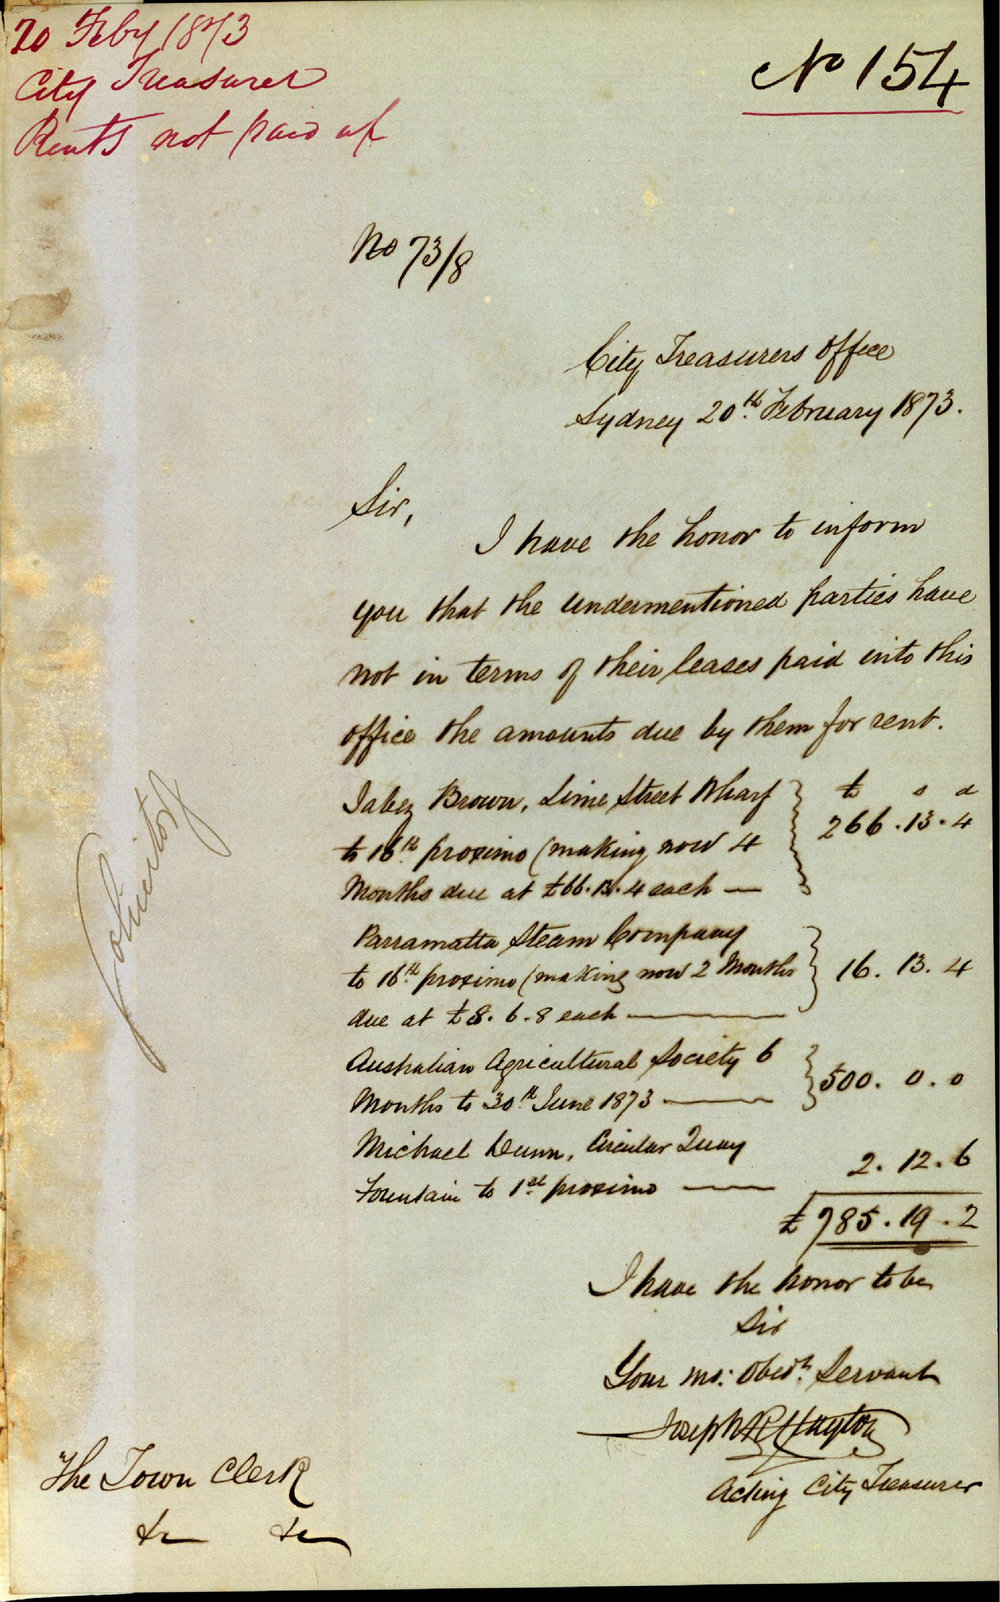 20 Feby 1873
City Treasurer
Rents not paid up
No 154
No 73/8
City Treasurers Office
Sydney 20th February 1873.
Sir,
I have the honor to inform
you that the undermentioned parties have
not in terms of their leases paid into this
office the amounts due by them for rent.
Jabez Brown, Lime Street Wharf
to 16th proximo (making now 4
Months due at £66.13.4 each —
£ s d
266.13.4
Parramatta Steam Company
to 16th proximo (making now 2 Months
due at £8.6.8 each —
16.13.4
Australian Agricultural Society 6
Months to 30th June 1873 —
500.0.0
Michael Dunn, Circular Quay
Fountain to 1st proximo —
2.12.6
£785.19.2
I have the honor to be
Sir
Your mo: Obedt. Servant
Joseph
Acting City Treasurer
The Town Clerk
&c &c
Solicitor